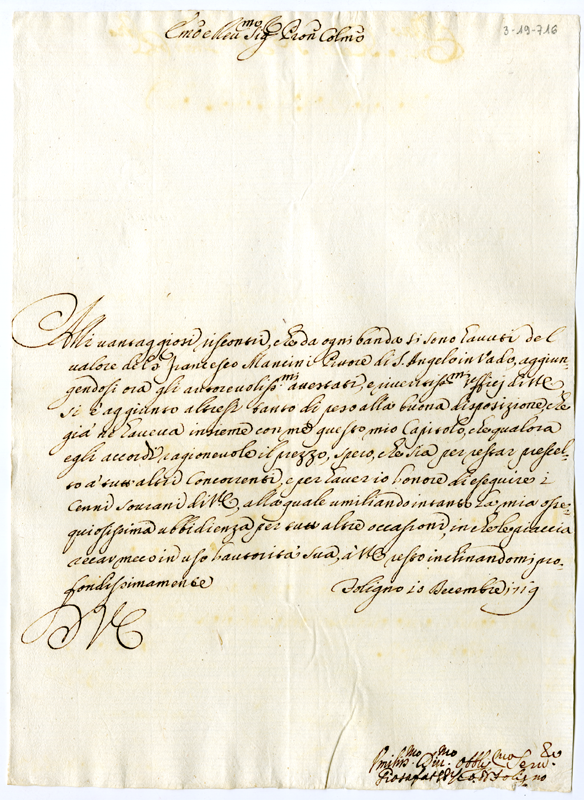 Em͂o e Reu.mo Sig.r Pron͂ Colmo͂
3-19-716
Alli vantaggiosi riscontri, che da ogni banda si sono havuti del
valore del S. Francesco Mancini Pittore di S. Angelo in Vado, aggiun-
gendosi ora gli autorevoliss.mi attestati, e riveritiss.mi uffizj di V.E.
si è aggiunto altresì tanto di peso alla buona disposizione, che
già ne haveva insieme con me questo mio Capitolo, che qualora
egli accordi ragionevole il prezzo, spero, che sia per restar prescel-
to à tutti altri Concorrenti, e per haver io honore di eseguire i
Cenni sourani di V.E., alla quale umiliando intanto la mia osse-
quiosissima ubbidienza per tutte altre occasioni, in che le piaccia
recar meco in uso l'autorità Sua, à V.E. resto inchinandomi pro-
fondissimamente
Foligno 10 Decembre 1719
D V E
Umiliss.mo Diu.mo Obblig.mo Seru.re
Giosafat Vesco. di Foligno